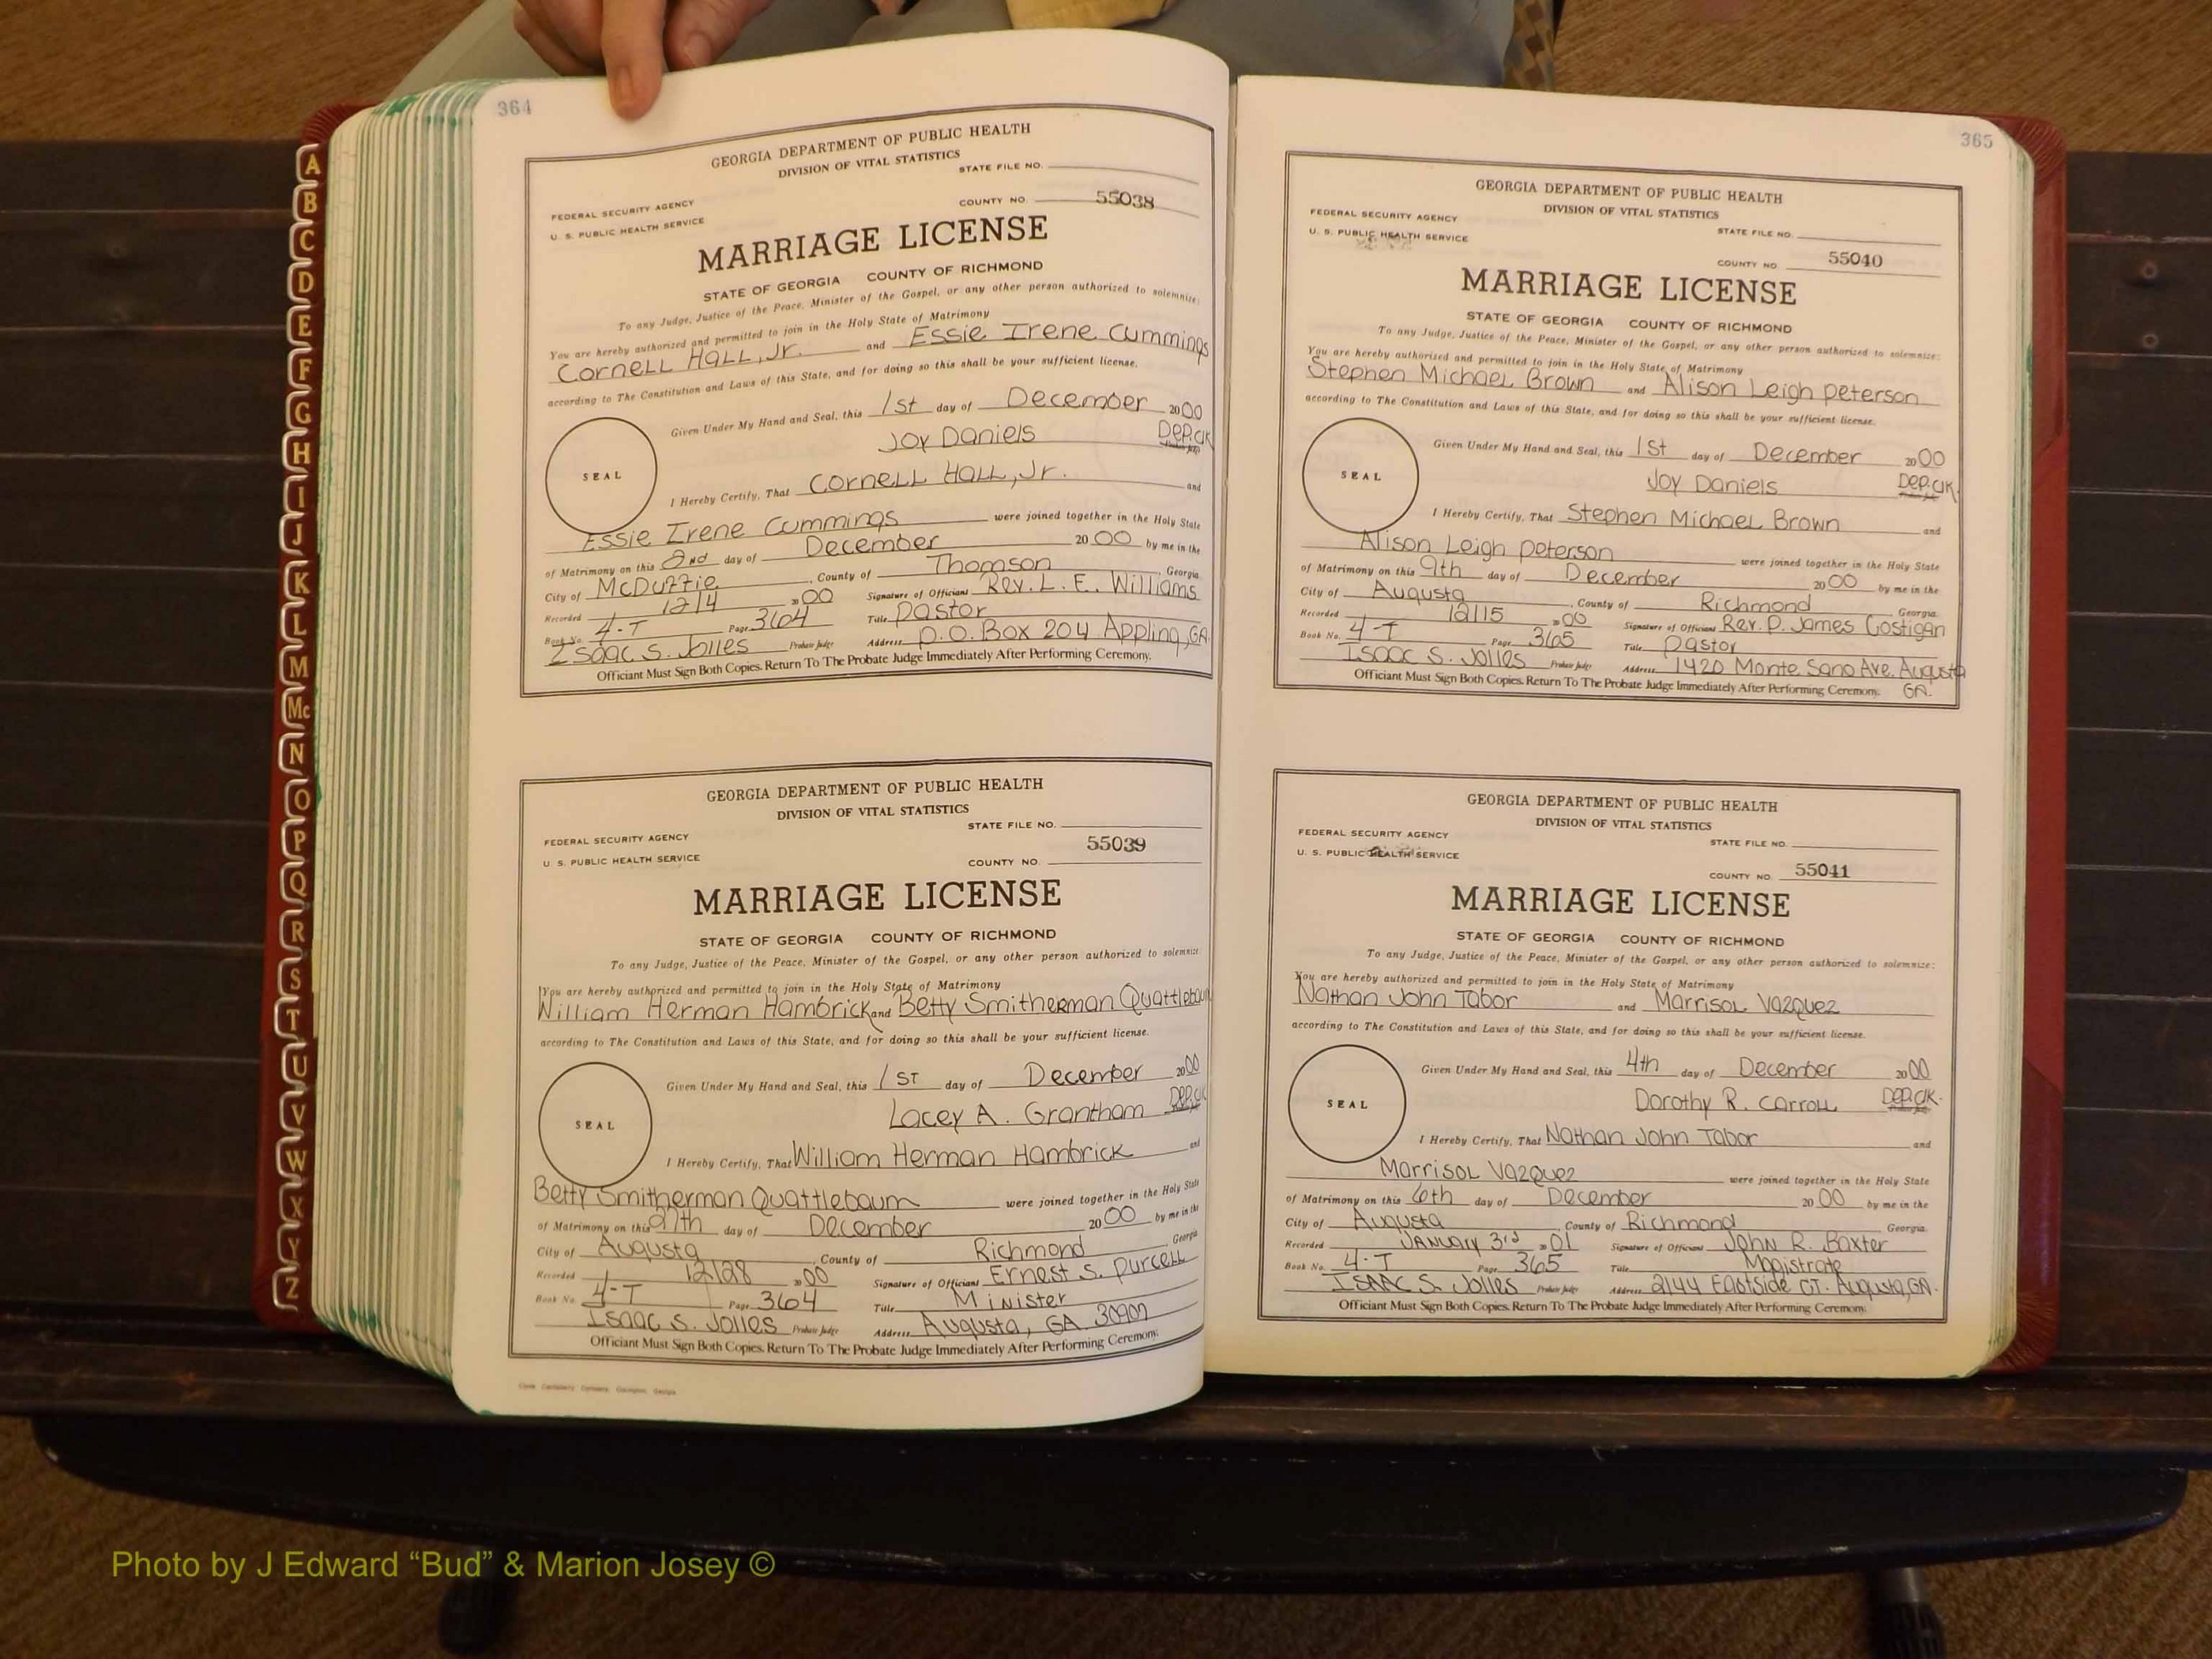 A
B
C
D
E
F
G
H
I
J
K
L
M
Mc
N
O
P
Q
R
S
T
U
V
W
X
Y
Z
364
GEORGIA DEPARTMENT OF PUBLIC HEALTH
DIVISION OF VITAL STATISTICS
STATE FILE NO.
FEDERAL SECURITY AGENCY
U. S. PUBLIC HEALTH SERVICE
COUNTY NO. 55038
MARRIAGE LICENSE
STATE OF GEORGIA COUNTY OF RICHMOND
To any Judge, Justice of the Peace, Minister of the Gospel, or any other person authorized to solemnize:
You are hereby authorized and permitted to join in the Holy State of Matrimony
Cornell Hall, Jr. and Essie Irene Cummings
according to The Constitution and Laws of this State, and for doing so this shall be your sufficient license.
Given Under My Hand and Seal, this 1st day of December 2000
Joy Daniels Dep. Clk
SEAL
I Hereby Certify, That Cornell Hall, Jr. and
Essie Irene Cummings were joined together in the Holy State
of Matrimony on this 2nd day of December 2000 by me in the
City of McDuffie, County of Thomson, Georgia
Recorded 12/4 2000 Signature of Officiant Rev. L. E. Williams
Book No. 4-T Page 364 Title Pastor
Isaac S. Jolles Probate Judge Address P.O. Box 204 Appling, GA.
Officiant Must Sign Both Copies. Return To The Probate Judge Immediately After Performing Ceremony.
GEORGIA DEPARTMENT OF PUBLIC HEALTH
DIVISION OF VITAL STATISTICS
STATE FILE NO.
FEDERAL SECURITY AGENCY
U. S. PUBLIC HEALTH SERVICE
COUNTY NO. 55039
MARRIAGE LICENSE
STATE OF GEORGIA COUNTY OF RICHMOND
To any Judge, Justice of the Peace, Minister of the Gospel, or any other person authorized to solemnize:
You are hereby authorized and permitted to join in the Holy State of Matrimony
William Herman Hambrick and Betty Smitherman Quattlebaum
according to The Constitution and Laws of this State, and for doing so this shall be your sufficient license.
Given Under My Hand and Seal, this 1st day of December 2000
Lacey A. Grantham Dep. Clk
SEAL
I Hereby Certify, That William Herman Hambrick and
Betty Smitherman Quattlebaum were joined together in the Holy State
of Matrimony on this 27th day of December 2000 by me in the
City of Augusta, County of Richmond, Georgia
Recorded 12/28 2000 Signature of Officiant Ernest S. Purcell
Book No. 4-T Page 364 Title Minister
Isaac S. Jolles Probate Judge Address Augusta, GA 30907
Officiant Must Sign Both Copies. Return To The Probate Judge Immediately After Performing Ceremony.
365
GEORGIA DEPARTMENT OF PUBLIC HEALTH
DIVISION OF VITAL STATISTICS
FEDERAL SECURITY AGENCY
U. S. PUBLIC HEALTH SERVICE
STATE FILE NO.
COUNTY NO. 55040
MARRIAGE LICENSE
STATE OF GEORGIA COUNTY OF RICHMOND
To any Judge, Justice of the Peace, Minister of the Gospel, or any other person authorized to solemnize:
You are hereby authorized and permitted to join in the Holy State of Matrimony
Stephen Michael Brown and Alison Leigh Peterson
according to The Constitution and Laws of this State, and for doing so this shall be your sufficient license.
Given Under My Hand and Seal, this 1st day of December 2000
Joy Daniels Dep. Clk.
SEAL
I Hereby Certify, That Stephen Michael Brown and
Alison Leigh Peterson were joined together in the Holy State
of Matrimony on this 9th day of December 2000 by me in the
City of Augusta, County of Richmond, Georgia
Recorded 12/15 2000 Signature of Officiant Rev. P. James Costigan
Book No. 4-T Page 365 Title Pastor
Isaac S. Jolles Probate Judge Address 1420 Monte Sano Ave. Augusta
Officiant Must Sign Both Copies. Return To The Probate Judge Immediately After Performing Ceremony. GA.
GEORGIA DEPARTMENT OF PUBLIC HEALTH
DIVISION OF VITAL STATISTICS
FEDERAL SECURITY AGENCY
U. S. PUBLIC HEALTH SERVICE
STATE FILE NO.
COUNTY NO. 55041
MARRIAGE LICENSE
STATE OF GEORGIA COUNTY OF RICHMOND
To any Judge, Justice of the Peace, Minister of the Gospel, or any other person authorized to solemnize:
You are hereby authorized and permitted to join in the Holy State of Matrimony
Nathan John Tabor and Marrisol Vazquez
according to The Constitution and Laws of this State, and for doing so this shall be your sufficient license.
Given Under My Hand and Seal, this 4th day of December 2000
Dorothy R. Carroll Dep. Clk.
SEAL
I Hereby Certify, That Nathan John Tabor and
Marrisol Vazquez were joined together in the Holy State
of Matrimony on this 6th day of December 2000 by me in the
City of Augusta, County of Richmond Georgia
Recorded January 3rd 2001 Signature of Officiant John R. Baxter
Book No. 4-T Page 365 Title Magistrate
Isaac S. Jolles Probate Judge Address 2144 Eastside CT. Augusta, GA.
Officiant Must Sign Both Copies. Return To The Probate Judge Immediately After Performing Ceremony.
Photo by J Edward “Bud” & Marion Josey ©